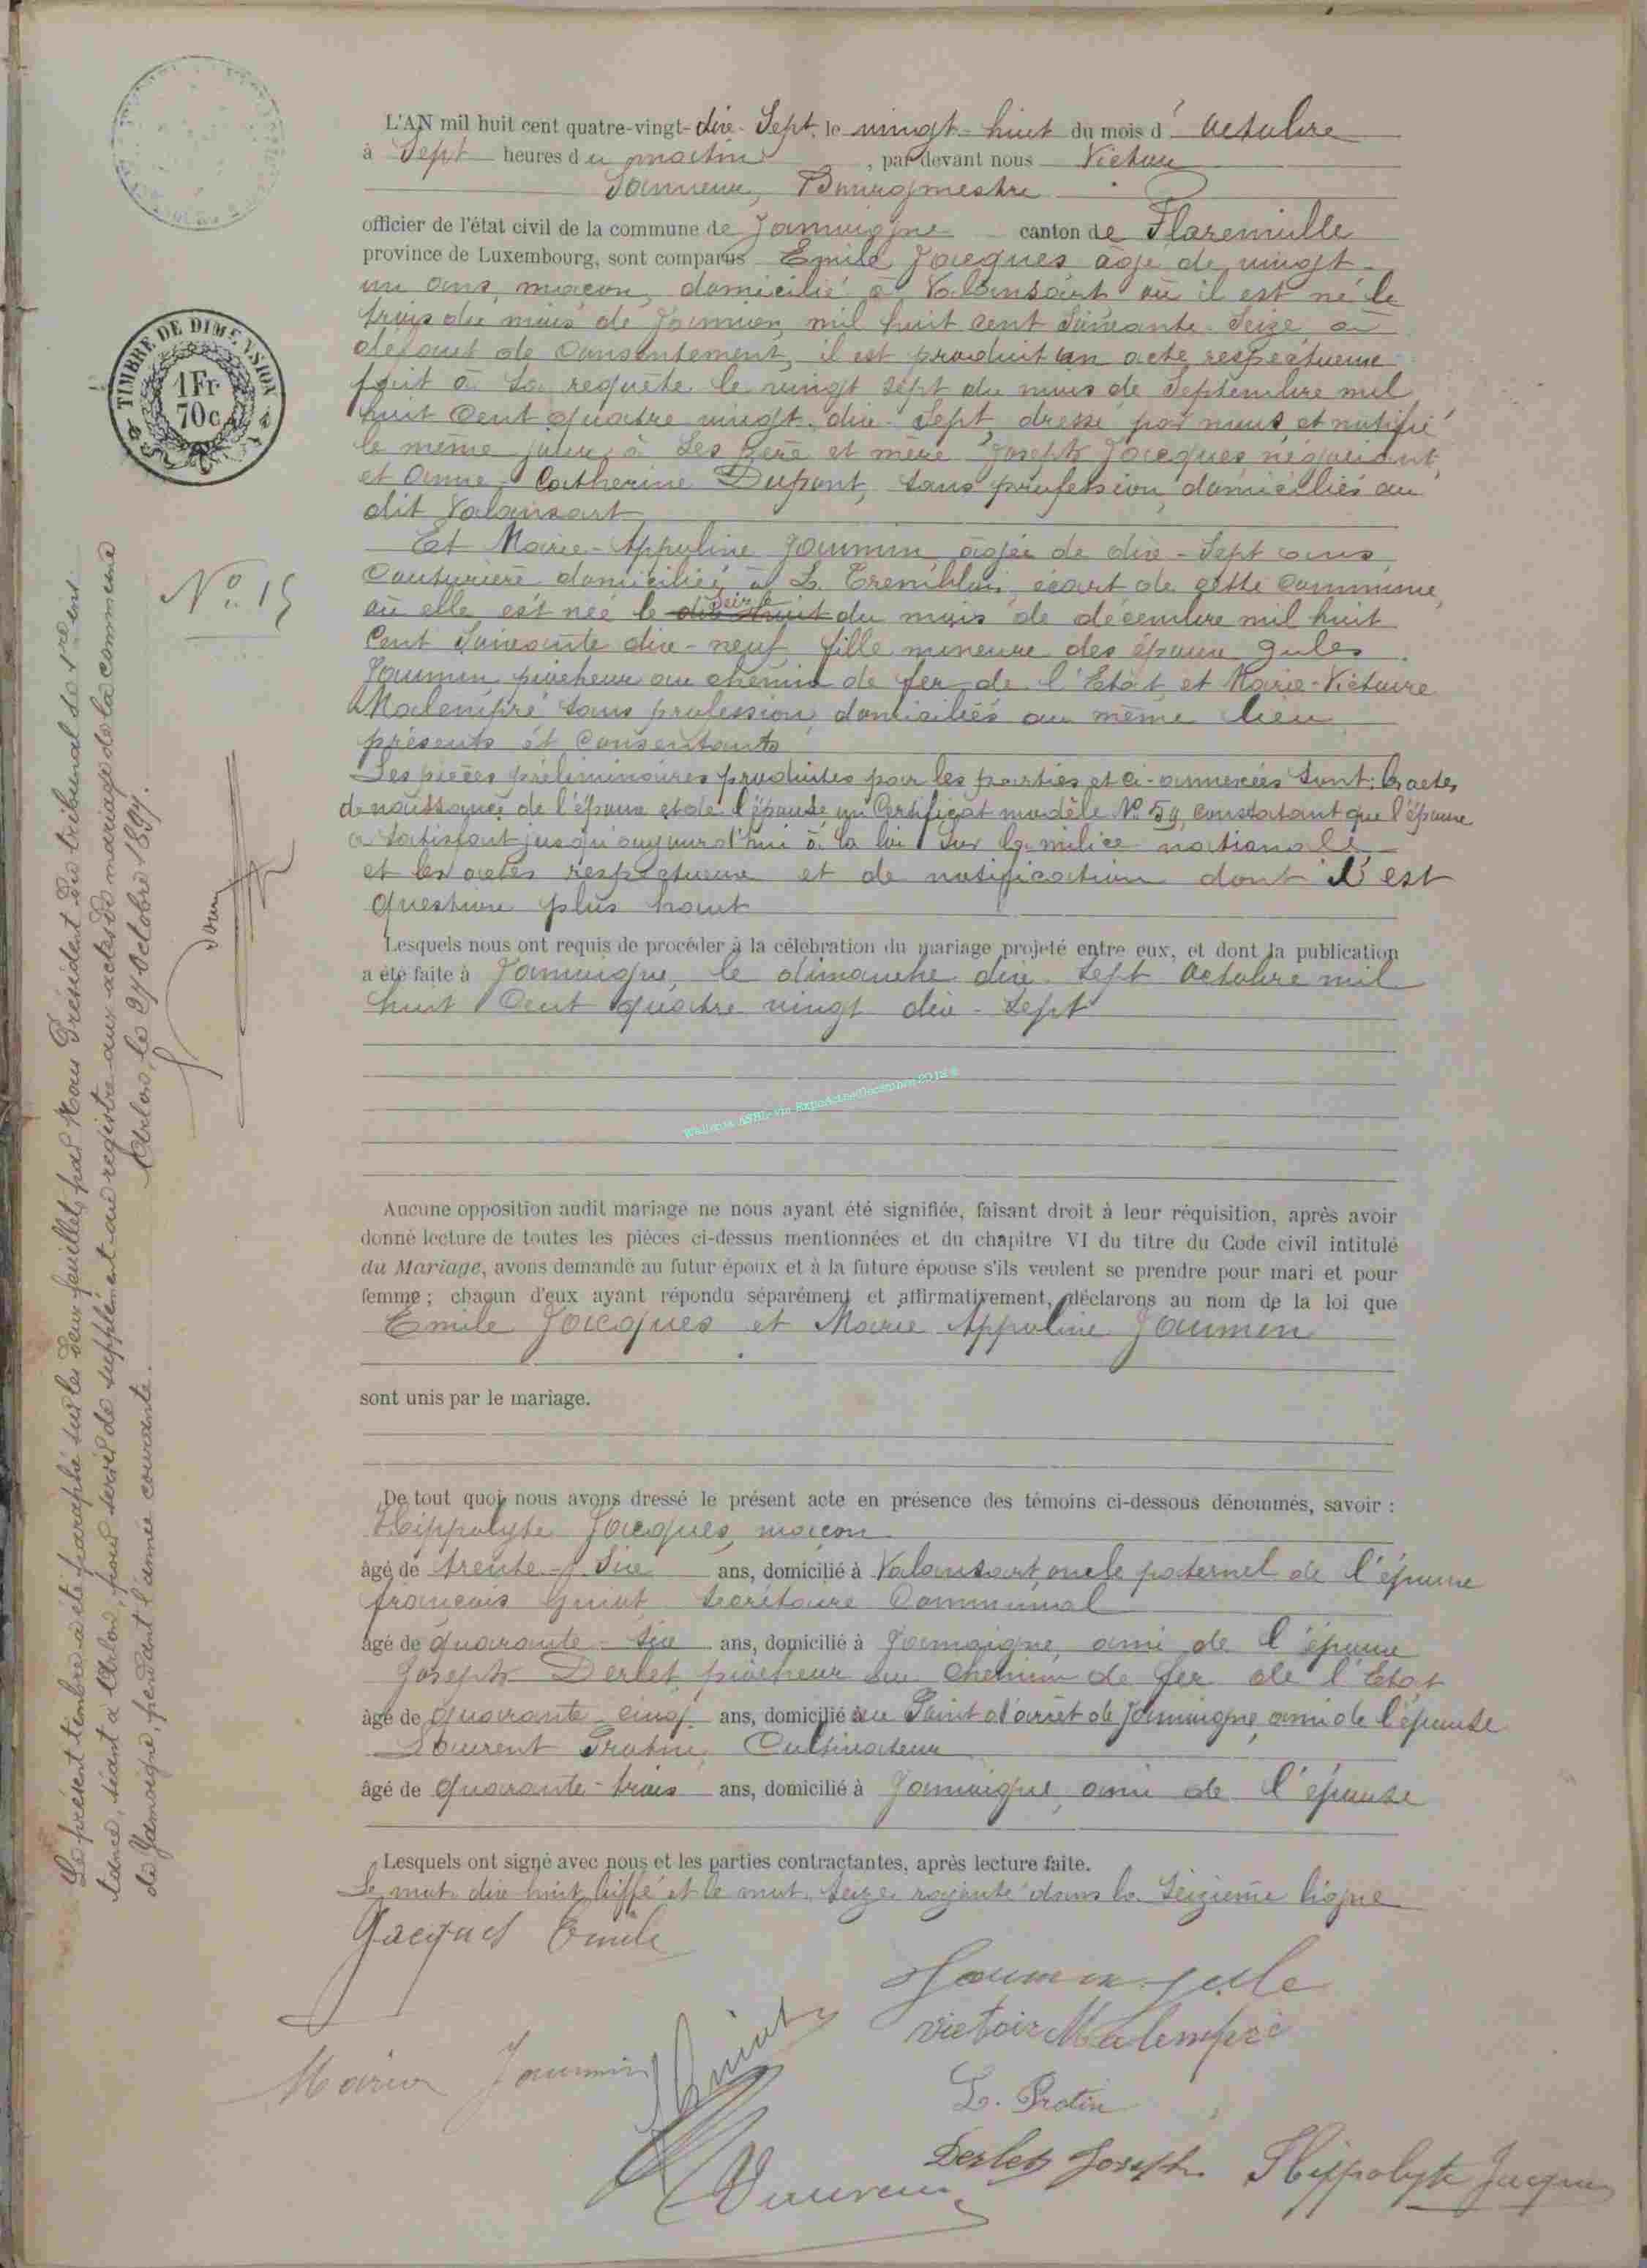 L'AN mil huit cent quatre-vingt-dix-Sept, le vingt-huit du mois d'Octobre
à Sept heures du matin, par devant nous Victor
Bourgmestre
officier de l'état civil de la commune de Jamoigne canton de Florenville
province de Luxembourg, sont comparus Emile Jacques âgé de vingt-
un ans, maçon, domicilié à Valansart où il est né le
trois du mois de Janvier mil huit cent Soixante-Seize, à
défaut de Consentement, il est produit un acte respectueux
fait à Sa requête le vingt sept du mois de Septembre mil
huit Cent quatre vingt-dix-Sept, dressé par nous et notifié
le même jour à Ses père et mère Joseph Jacques, négociant,
et Anne-Catherine Dupont, Sans profession, domiciliés au
dit Valansart
Et Marie-Appoline Jaumin âgée de dix-Sept ans
Couturière domiciliée à L. Tremblois, écart de cette Commune,
où elle est née le dix huit Seize du mois de décembre mil huit
Cent Soixante dix-neuf, fille mineure des époux Jules
Jaumin piocheur au chemin de fer de l'Etat et Marie-Victoire
Malempré Sans profession, domiciliés au même lieu
présents et Consentants
Les pièces préliminaires produites par les parties et ci-annexées Sont: les actes
de naissance de l'époux et de l'épouse, un Certificat modèle N° 59, constatant que l'époux
a Satisfait jusqu'aujourd'hui à la loi Sur la milice nationale
et les actes respectueux et de notification dont il est
question plus haut
Lesquels nous ont requis de procéder à la célébration du mariage projeté entre eux, et dont la publication
a été faite à Jamoigne, le dimanche dix-Sept Octobre mil
huit Cent quatre vingt dix-Sept
Wallonia ASBL via ExpoActes Décembre 2018 ©
Aucune opposition audit mariage ne nous ayant été signifiée, faisant droit à leur réquisition, après avoir
donné lecture de toutes les pièces ci-dessus mentionnées et du chapitre VI du titre du Code civil intitulé
du Mariage, avons demandé au futur époux et à la future épouse s'ils veulent se prendre pour mari et pour
femme ; chacun d'eux ayant répondu séparément et affirmativement, déclarons au nom de la loi que
Emile Jacques et Marie Appoline Jaumin
sont unis par le mariage.
De tout quoi nous avons dressé le présent acte en présence des témoins ci-dessous dénommés, savoir :
Hippolyte Jacques, maçon
âgé de trente-Six ans, domicilié à Valansart, oncle paternel de l'époux
françois Guiot Secrétaire Communal
âgé de quarante-Six ans, domicilié à Jamoigne, ami de l'époux
Joseph Derlet, piocheur au Chemin de fer de l'Etat
âgé de quarante-cinq ans, domicilié au Point d'arrêt de Jamoigne, ami de l'épouse
Laurent Protin, Cultivateur
âgé de quarante-trois ans, domicilié à Jamoigne, ami de l'épouse
Lesquels ont signé avec nous et les parties contractantes, après lecture faite.
Le mot dix huit biffé et le mot Seize rajouté dans la Seizième ligne
Jacques Emile
Jaumin Jule
victoire Malempré
Maria Jaumin
Guiot
L. Protin
Derlet Joseph
Hippolyte Jacques
TIMBRE DE DIMENSION
1 Fr
70 c
N° 15
Le présent timbre a été paraphé sur les deux feuillets par Nous Président du tribunal de 1re ins
tance, séant à Arlon, pour servir de supplément au registre aux actes de mariage de la commune
de Jamoigne, pendant l'année courante. Arlon, le 27 Octobre 1897.